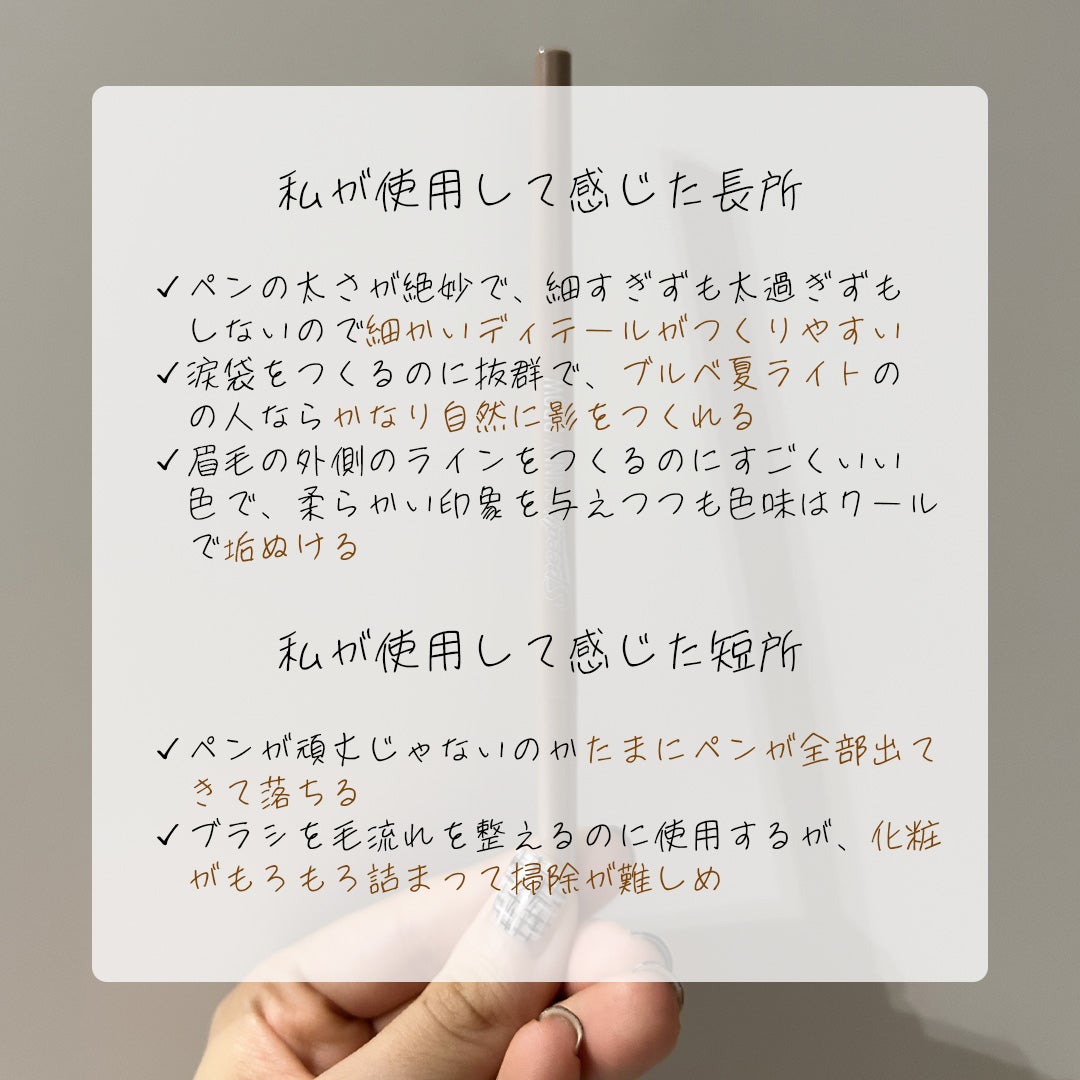 私が使用して感じた長所
✓ペンの太さが絶妙で、細すぎずも太過ぎずも
しないので細かいディテールがつくりやすい
✓涙袋をつくるのに抜群で、ブルベ夏ライトの
の人ならかなり自然に影をつくれる
✓眉毛の外側のラインをつくるのにすごくいい
色で、柔らかい印象を与えつつも色味はクール
で垢ぬける
私が使用して感じた短所
✓ペンが頑丈じゃないのかたまにペンが全部出て
きて落ちる
✓ブラシを毛流れを整えるのに使用するが、化粧
がもろもろ詰まって掃除が難しめ